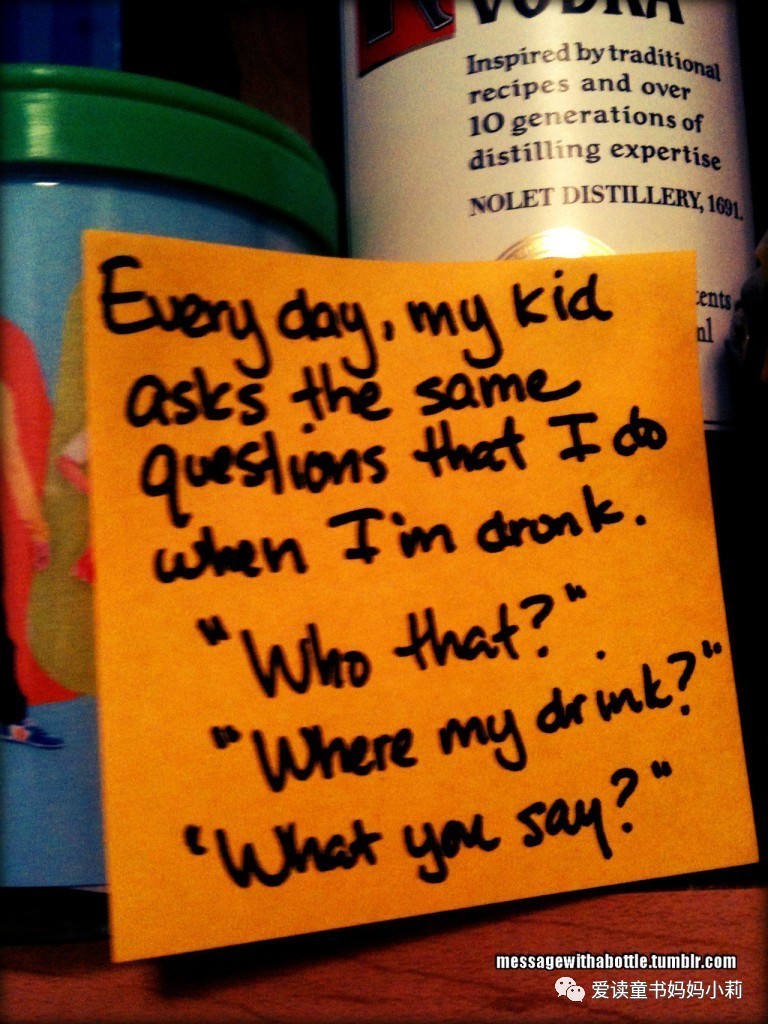 VODKA
Inspired by traditional
recipes and over
10 generations of
distilling expertise
NOLET DISTILLERY, 1691.
Every day, my kid
asks the same
questions that I do
when I'm drunk.
"Who that?"
"Where my drink?"
"What you say?"
messagewithabottle.tumblr.com
爱读童书妈妈小莉